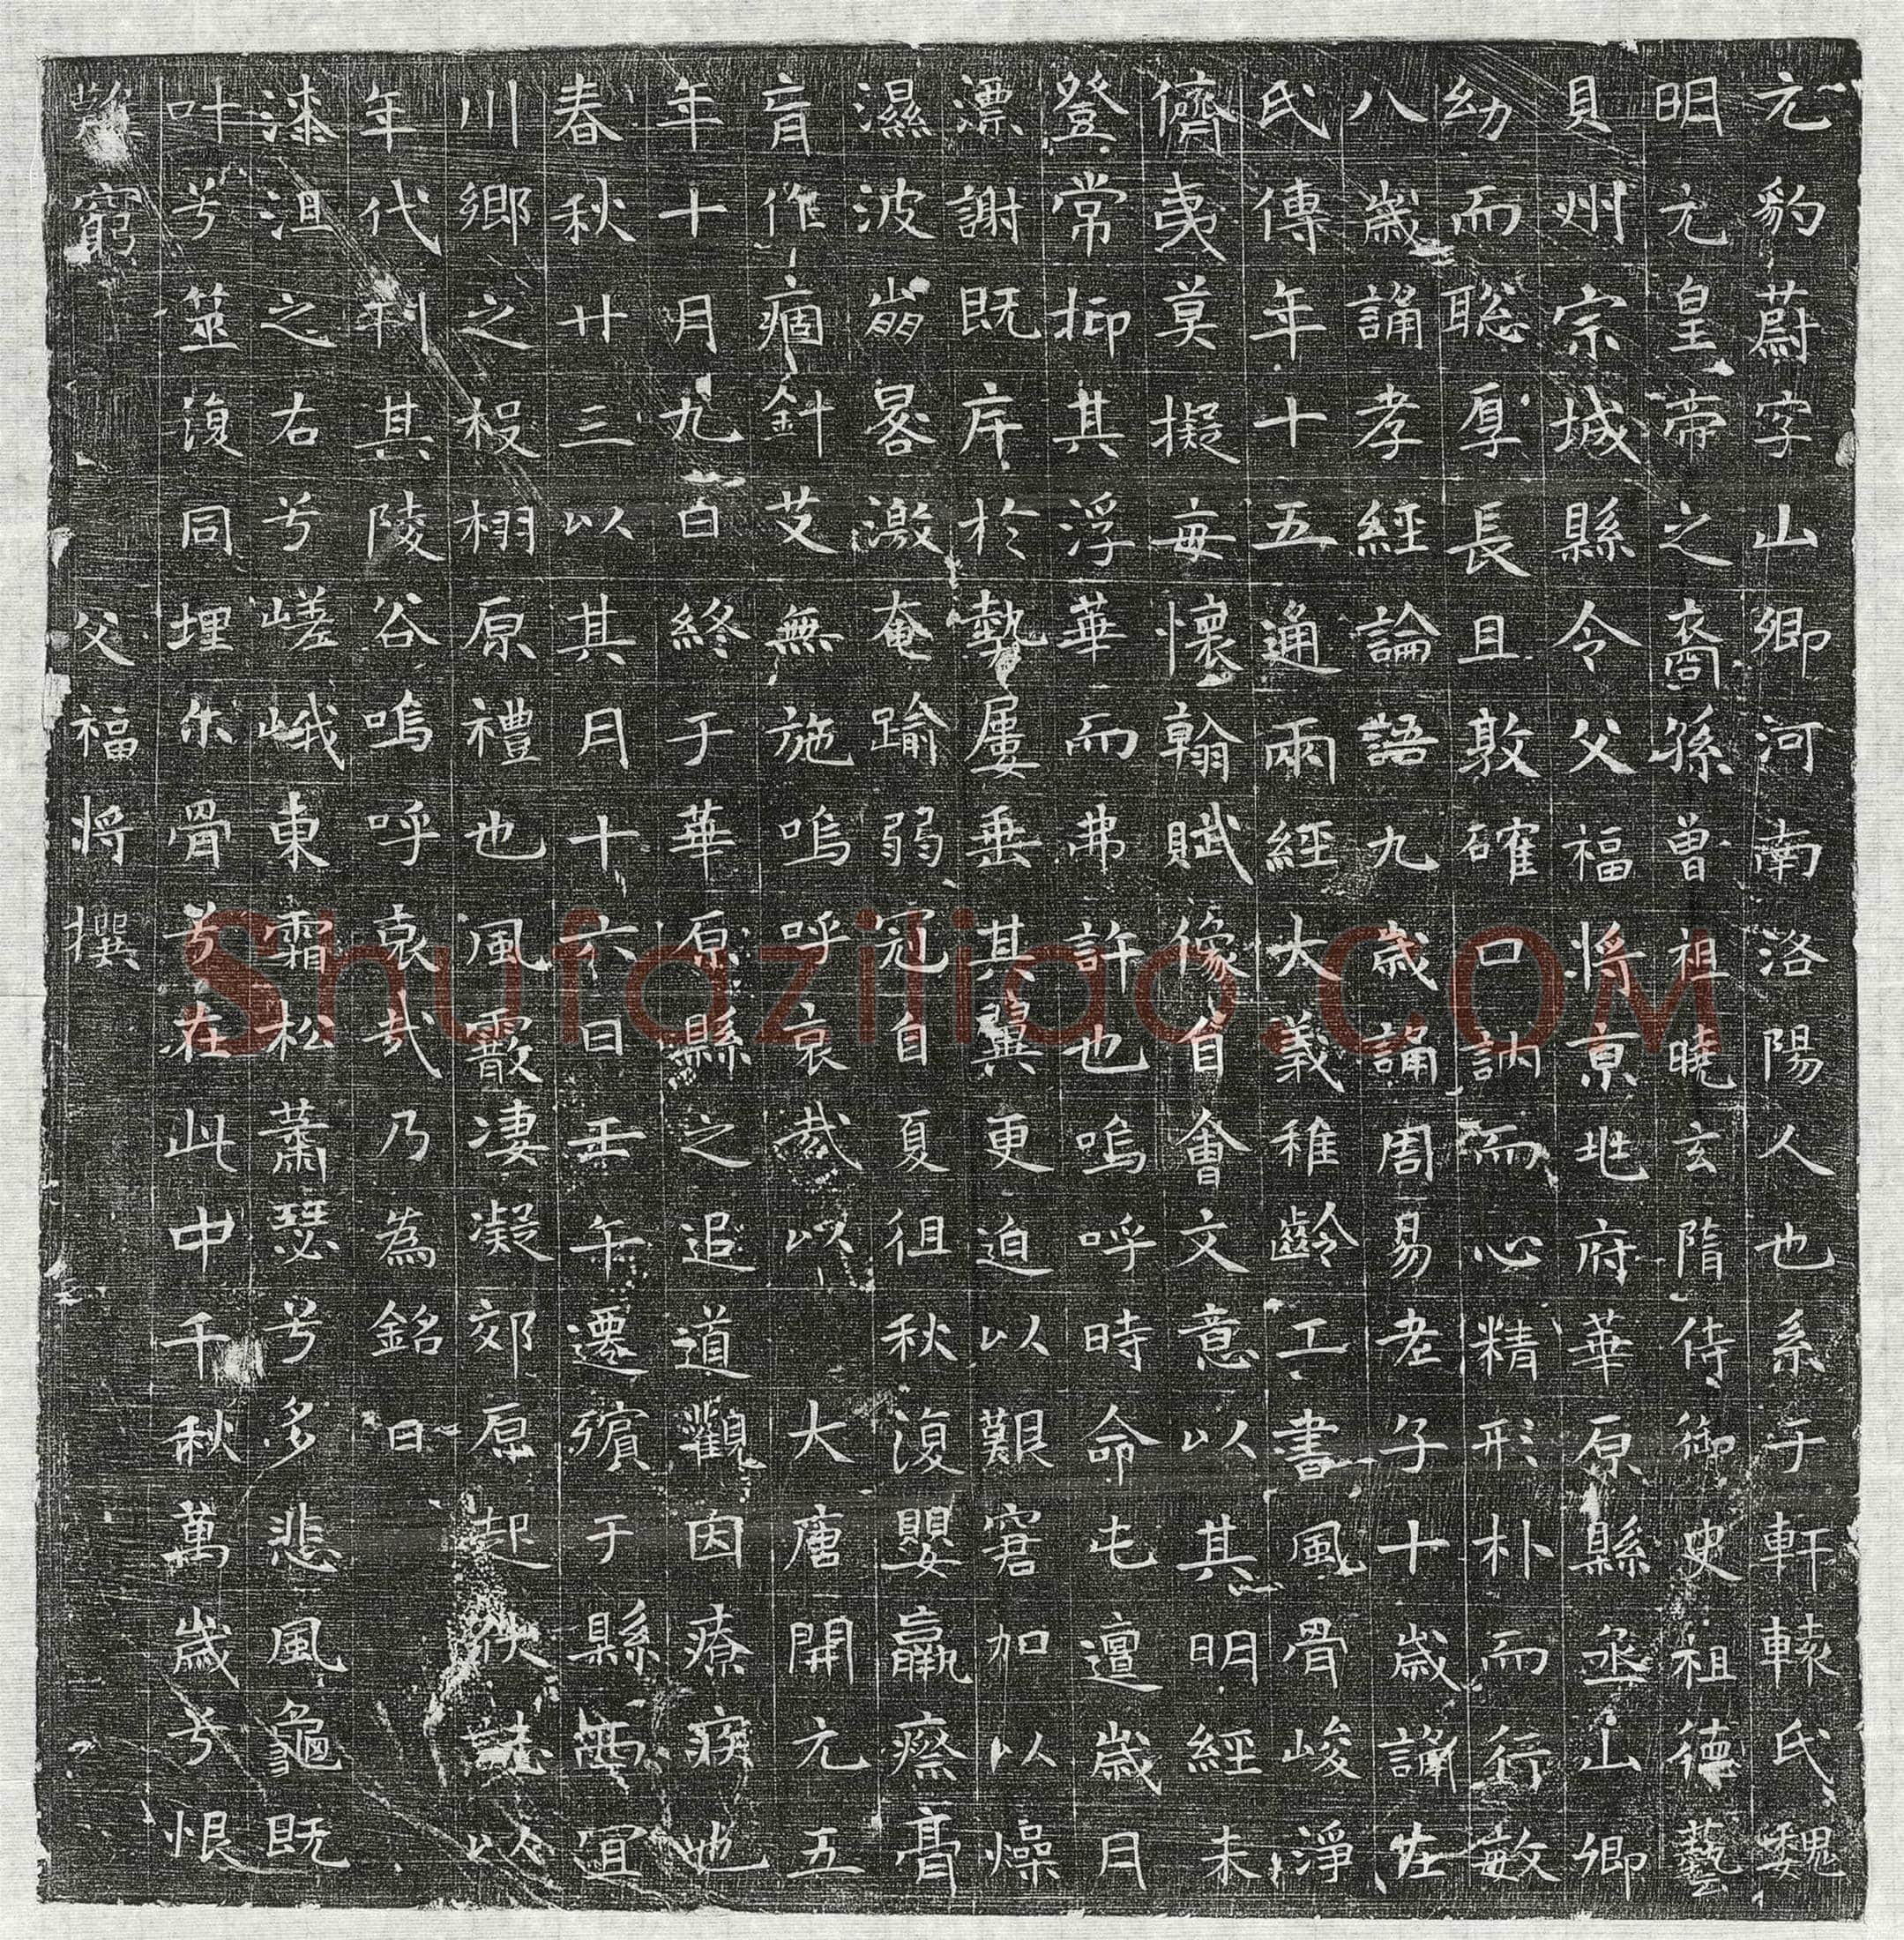 元豹蔚字山卿河南洛陽人也系于軒轅氏魏
明元皇帝之裔孫曾祖曉玄隋侍御史祖德藝
貝州宗城縣令父福將京兆府華原縣丞山卿
幼而聡厚長且敦確口訥而心精形朴而行敏
八歲誦孝經論語九歲誦周易老子十歲誦左
氏傳年十五通兩經大義稚齡工書風骨峻淨
儕夷莫擬每懷翰賦像自會文意以其明經未
登常抑其浮華而弗許也嗚呼時命屯邅歲月
漂謝既庠於藝屢垂其翼更迫以艱窘加以燥
濕波崩晷激奄踰弱冠自夏徂秋復嬰羸瘵膏
肓作痼針艾無施嗚呼哀哉以大唐開元五
年十月九白終于華原縣之追道觀因療疾也
春秋廿三以其月十六日壬午遷殯于縣西宜
川鄉之祋栩原禮也風霰凄凝郊原起伏誌以
年代刊其陵谷嗚呼哀哉乃為銘曰
漆沮之右兮嵯峨東霜松蕭瑟兮多悲風龜既
叶兮筮復同埋尔骨兮在此中千秋萬歲兮恨
無窮 父福將撰
Shufaziliao.COM